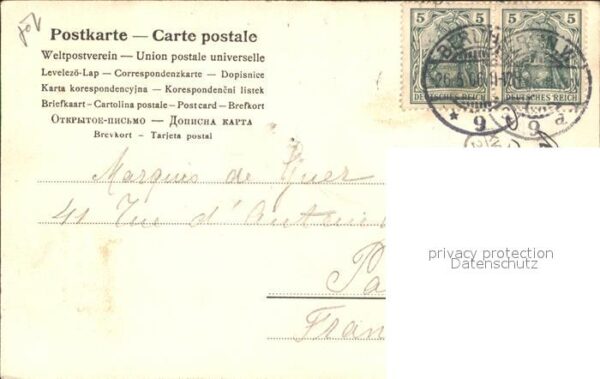 Postkarte — Carte postale
Weltpostverein — Union postale universelle
Levelező-Lap — Correspondenzkarte — Dopisnice
Karta korespondencyjna — Korespondenční listek
Briefkaart - Cartolina postale - Postcard - Brefkort
Открытое-письмо — Дописна карта
Brevkort - Tarjeta postal
5 5 5 5
DEUTSCHES REICH DEUTSCHES REICH
* 9 9 a
Marquis de
41 Rue d'
Pa
Fran
privacy protection
Datenschutz